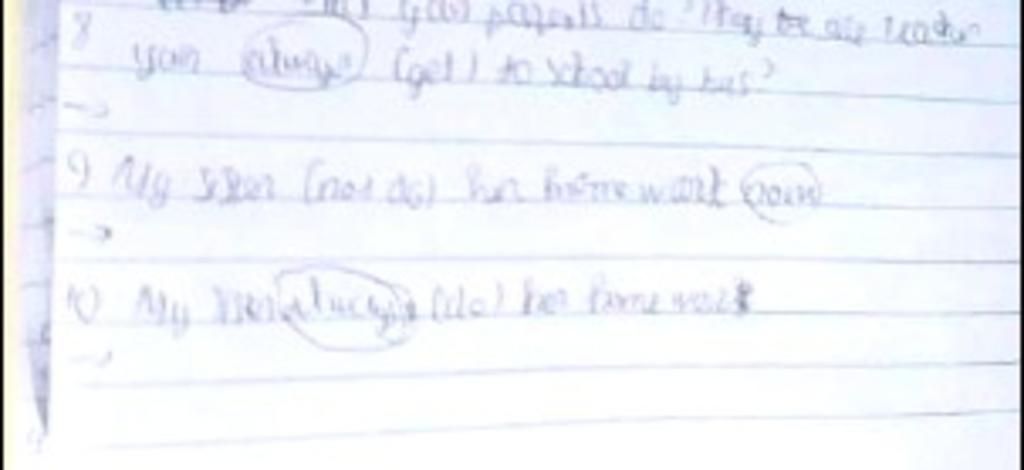 your parents do? They be are teacher
8 you always (get) to school by bus?
→
9) My sister (not do) her home work now
→
10) My sister always (do) her home work
→